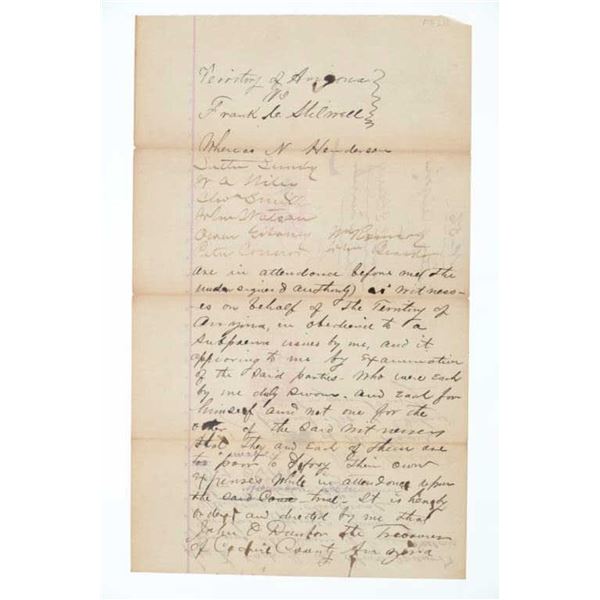 Territory of Arizona
vs
Frank C Stilwell
Whereas N. Henderson
John Watson
Owen Gibney
Peter Connor
are in attendance before me (the
undersigned authority) as witness-
es on behalf of The Territory of
Arizona, in obedience to a
subpoena issued by me, and it
appearing to me by examination
of the said parties. Who were Each
by me duly sworn. and Each for
himself and not one for the
other of the said witnesses
that They and Each of them are
poor to defray Their own
Expenses While in attendance upon
the said trial. It is hereby
orderd and directed by me that
John O Dunbar The Treasurer
of Cochise County Arizona